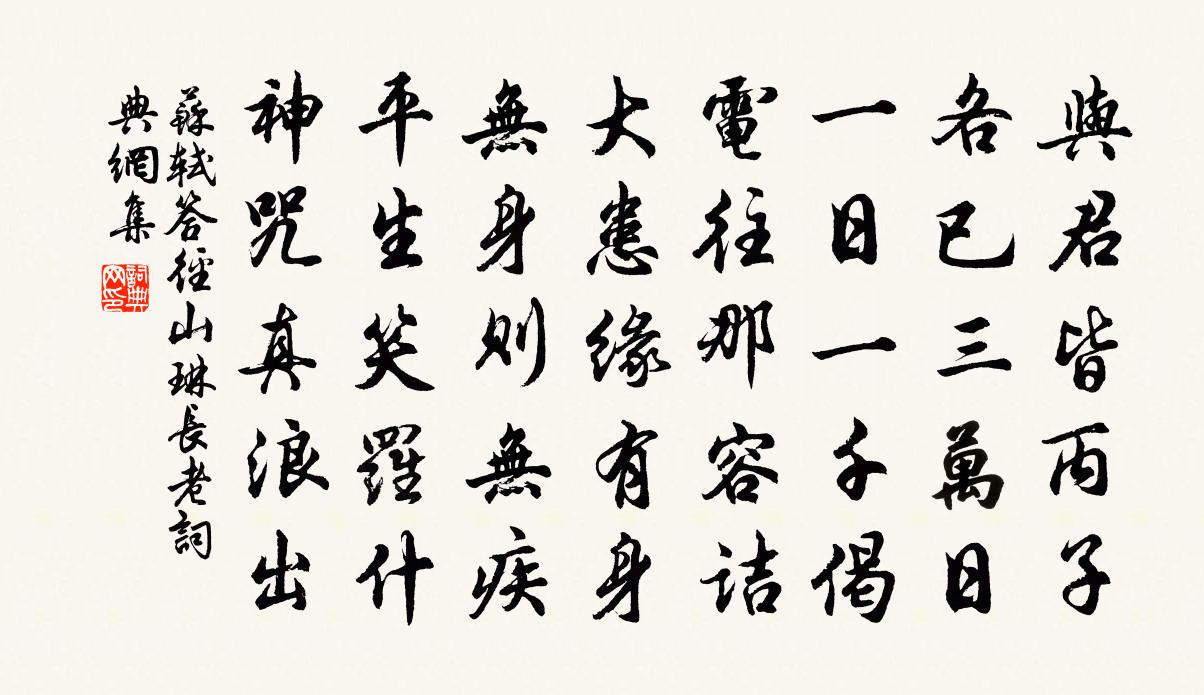 與君皆丙子
各已三萬日
一日一千偈
電往那容詰
大患緣有身
無身則無疾
平生笑羅什
神咒真浪出
蘇軾答徑山琳長老詞
典網集
詞典
网印